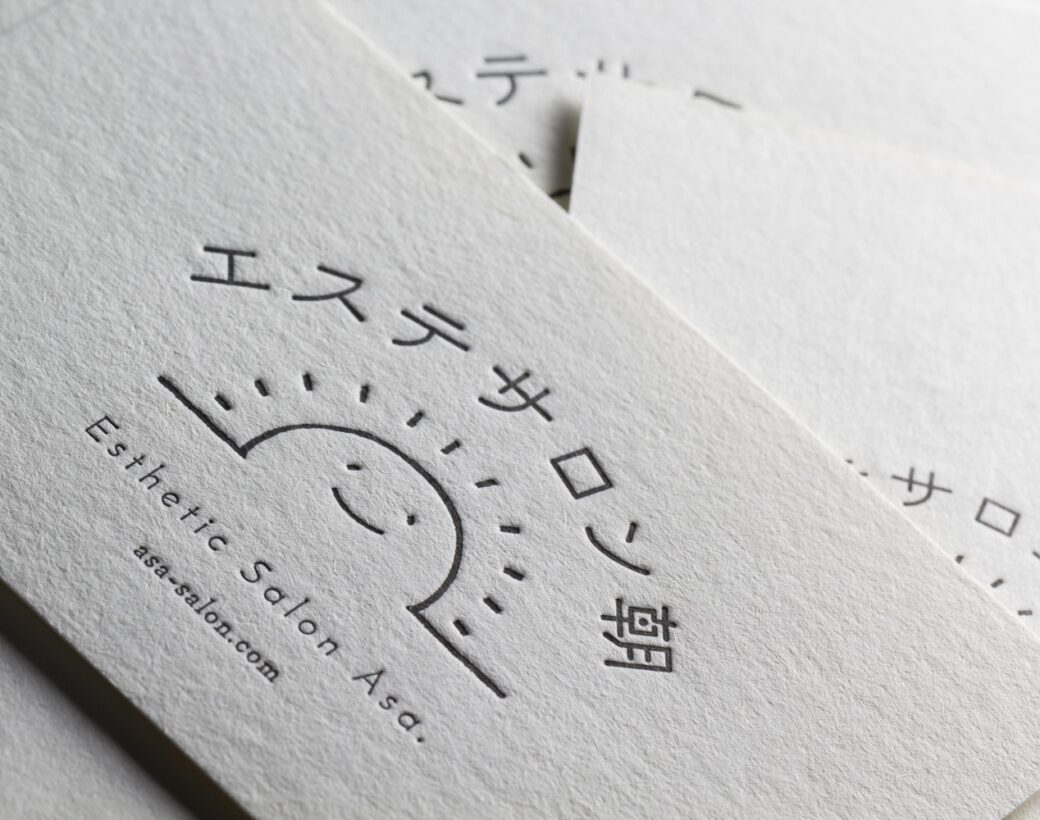 エステサロン朝
Esthetic Salon Asa.
asa-salon.com
ステサ
サロン